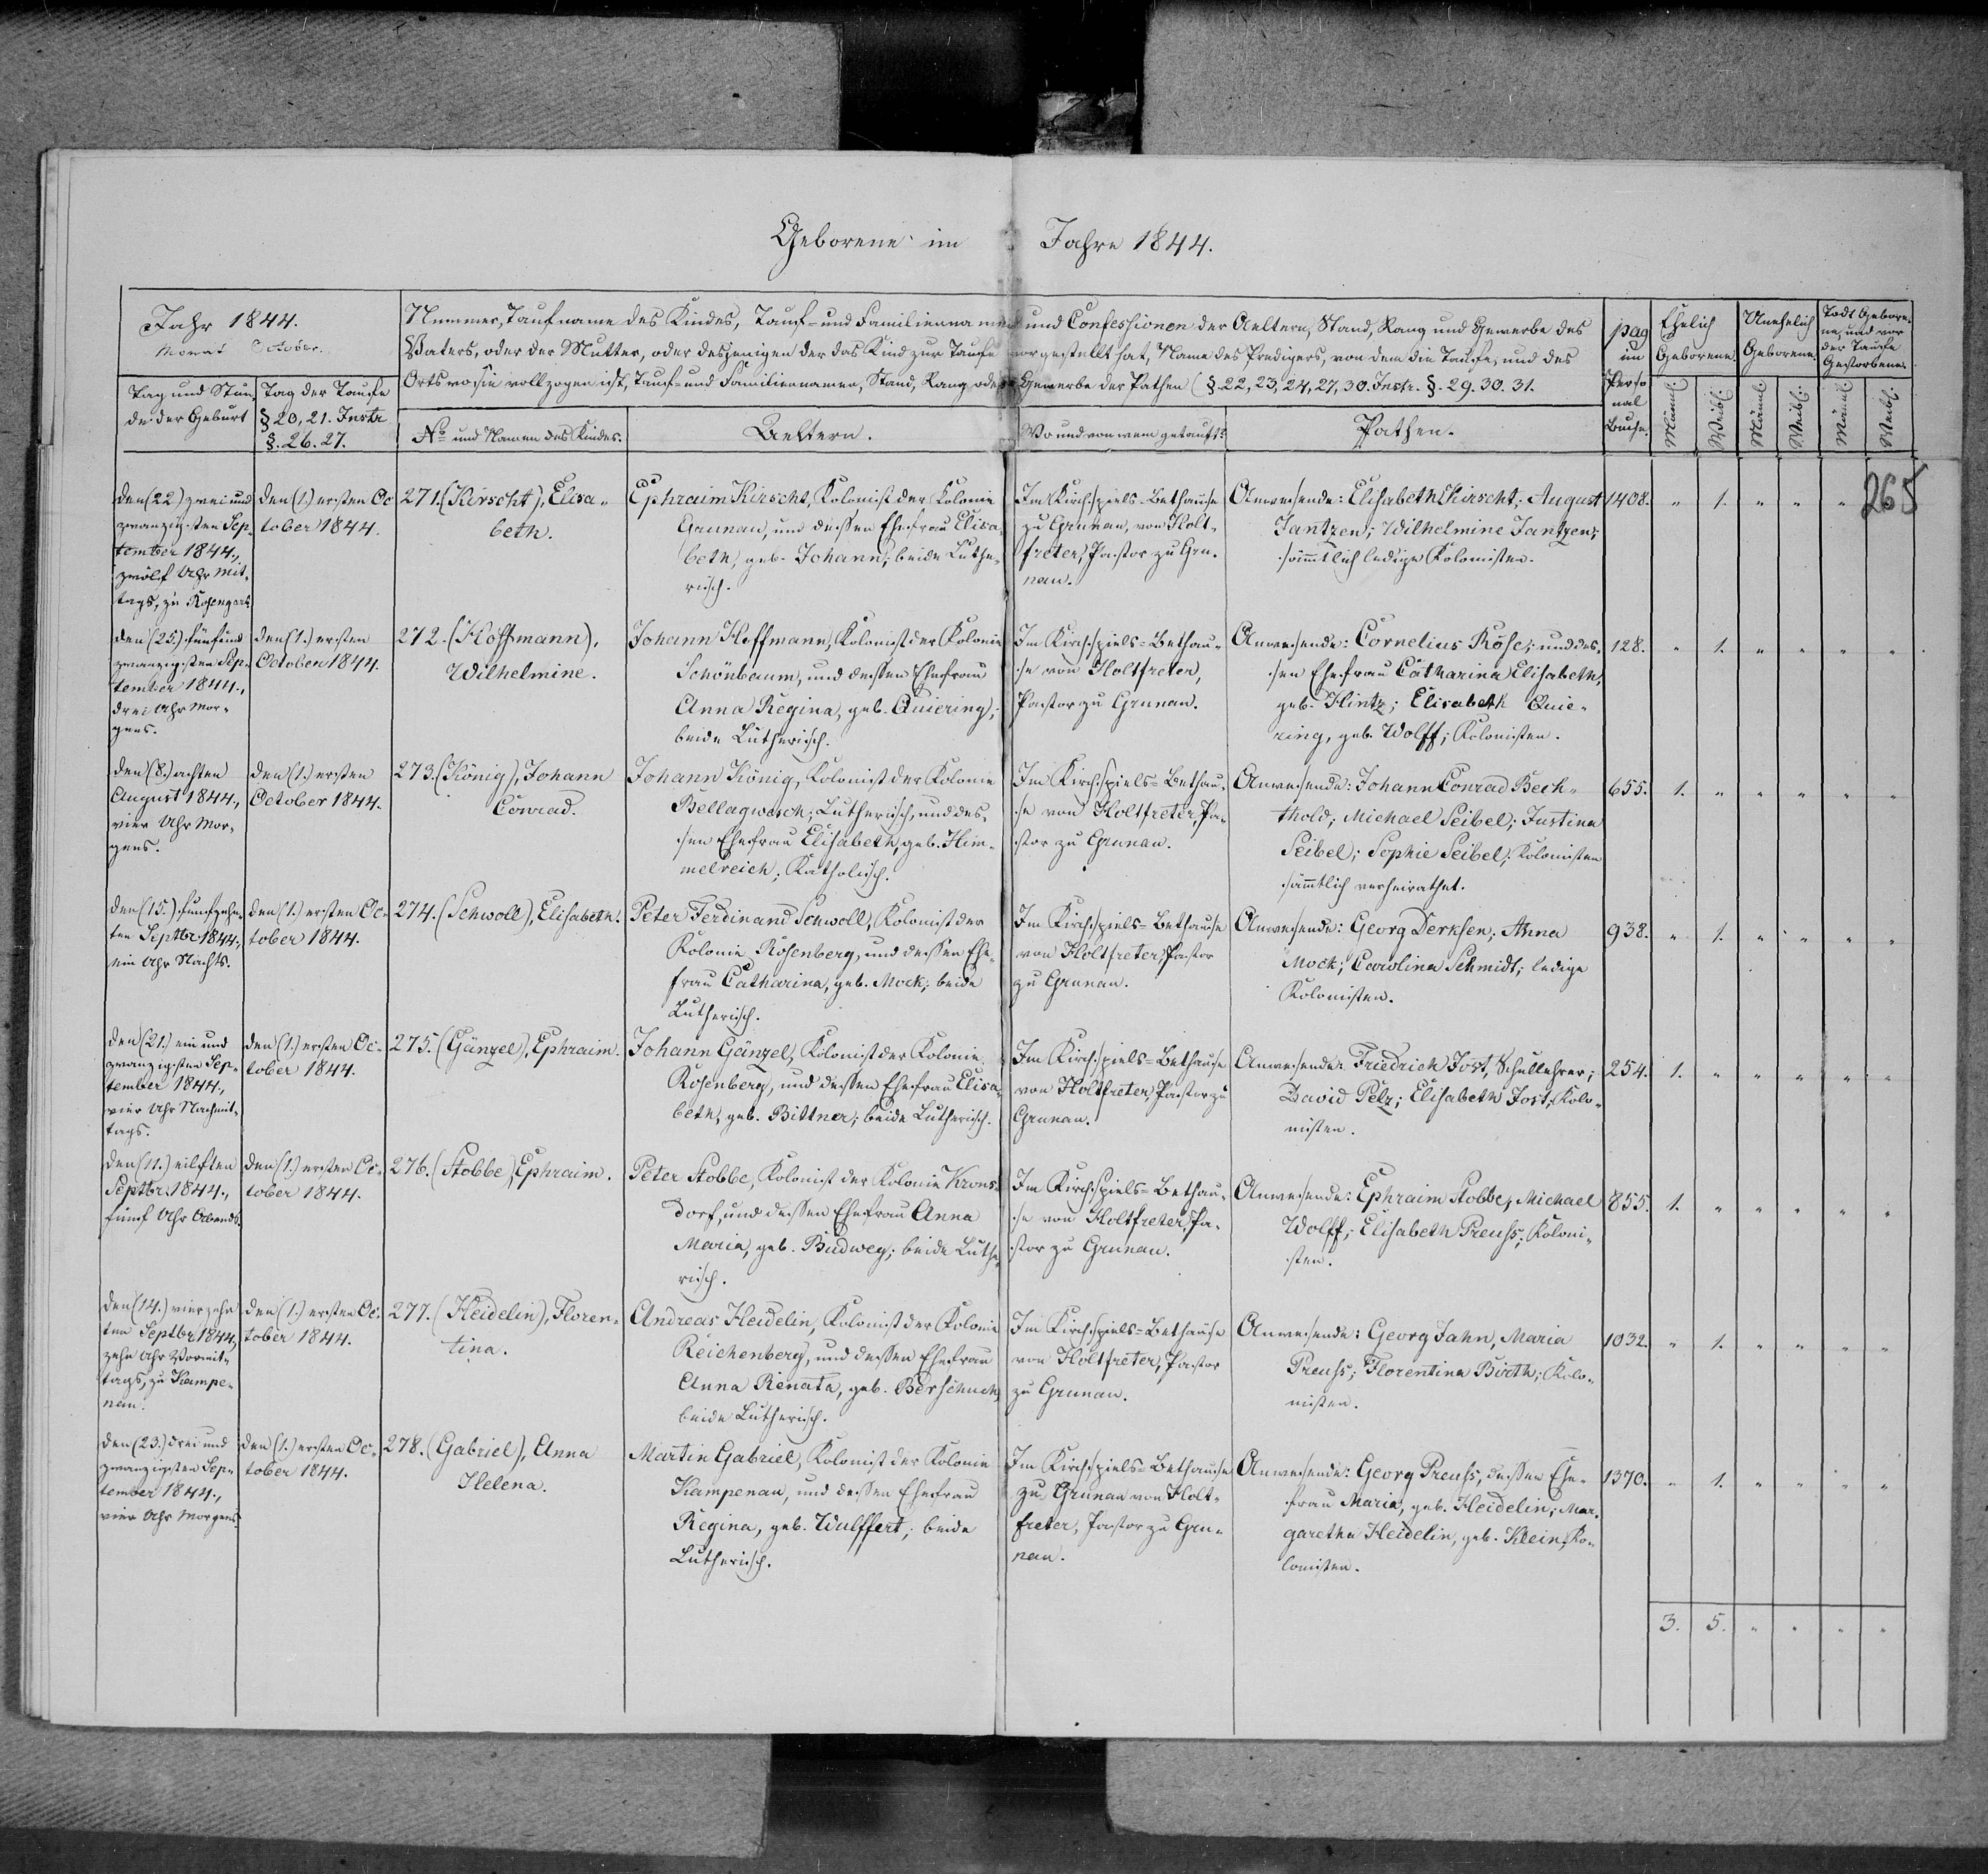 Geborene im Jahre 1844.
Jahr 1844.
Monat October.
Tag und Stun-
de der Geburt
Tag der Taufe
§ 20, 21. Instr
§. 26. 27.
Nummer, Taufname des Kindes, Tauf- und Familiennamen und Confessionen der Aeltern, Stand, Rang und Gewerbe des
Vaters, oder der Mutter, oder desjenigen der das Kind zur Taufe vorgestellt hat, Name des Predigers, von dem die Taufe, und des
Orts wo sie vollzogen ist, Tauf- und Familiennamen, Stand, Rang oder Gewerbe der Pathen (§. 22, 23, 24, 27, 30. Instr. §. 29. 30. 31.
No und Namen des Kindes.
Aeltern.
Wo und von wem getauft?
Pathen.
pag
im
Perso
nal
Buche.
Ehelich
Geborene.
Unehelich
Geborene.
Todt Gebore-
ne, und vor
der Taufe
Gestorbene.
Männl:
Weibl:
Männl:
Weibl:
Männl:
Weibl:
265
den (22) zwei und
zwanzigsten Sep-
tember 1844.,
zwölf Uhr Mit-
tags, zu Rosengart
den (1.) ersten Oc
tober 1844.
271. (Kirscht), Elisa-
beth.
Ephraim Kirscht, Kolonist der Kolonie
Grunau, und dessen Ehefrau Elisa-
beth, geb. Johann; beide Luthe-
risch.
Im Kirchspiels-Bethause
zu Grunau, von Holt-
freter, Pastor zu Gru-
nau.
Anwesende: Elisabeth Kirscht; August
Jantzen; Wilhelmine Jantzen;
sämmtlich ledige Kolonisten.
1408. " 1. " " "
den (25.) fünf und
zwanzigsten Sep-
tember 1844.,
drei Uhr Mor-
gens.
den (1.) ersten
October 1844.
272. (Hoffmann),
Wilhelmine.
Johann Hoffmann, Kolonist der Kolonie
Schönbaum, und dessen Ehefrau
Anna Regina, geb. Quiering;
beide Lutherisch.
Im Kirchspiels-Bethau-
se von Holtfreter,
Pastor zu Grunau.
Anwesende: Cornelius Röse; und des-
sen Ehefrau Catharina Elisabeth,
geb. Hintz; Elisabeth Quie-
ring, geb. Wolff; Kolonisten.
128. " 1. " " " "
den (8.) achten
August 1844.,
vier Uhr Mor-
gens.
den (1.) ersten
October 1844.
273. (König), Johann
Conrad.
Johann König, Kolonist der Kolonie
Bellagwesch; Lutherisch, und des-
sen Ehefrau Elisabeth, geb. Him-
melreich; Katholisch.
Im Kirchspiels-Bethau-
se von Holtfreter, Pa-
stor zu Grunau.
Anwesende: Johann Conrad Bech-
thold; Michael Seibel; Justina
Seibel; Sophie Seibel; Kolonisten
sämtlich verheirathet.
655. 1. " " " " "
den (15.) fünfzehn-
ten Septbr. 1844.,
ein Uhr Nachts.
den (1.) ersten Oc-
tober 1844.
274. (Schwoll), Elisabeth.
Peter Ferdinand Schwoll, Kolonist der
Kolonie Rosenberg, und dessen Ehe-
frau Catharina, geb. Mock; beide
Lutherisch.
Im Kirchspiels-Bethause
von Holtfreter, Pastor
zu Grunau.
Anwesende: Georg Derksen; Anna
Mock; Carolina Schmidt; ledige
Kolonisten.
938. " 1. " " " "
den (21.) ein und
zwanzigsten Sep-
tember 1844.,
vier Uhr Nachmit-
tags.
den (1.) ersten Oc-
tober 1844.
275. (Gänzel), Ephraim.
Johann Gänzel, Kolonist der Kolonie
Rosenberg, und dessen Ehefrau Elisa-
beth, geb. Bittner; beide Lutherisch.
Im Kirchspiels-Bethause
von Holtfreter, Pastor zu
Grunau.
Anwesende: Friedrich Jost, Schullehrer;
David Pelz; Elisabeth Jost; Kolo-
nisten.
254. 1. " " " " "
den (11.) eilften
Septbr. 1844.,
fünf Uhr Abends.
den (1.) ersten Oc-
tober 1844.
276. (Stobbe), Ephraim.
Peter Stobbe, Kolonist der Kolonie Krons-
dorf, und dessen Ehefrau Anna
Maria, geb. Budweg; beide Luthe-
risch.
Im Kirchspiels-Bethau-
se von Holtfreter, Pa-
stor zu Grunau.
Anwesende: Ephraim Stobbe; Michael
Wolff; Elisabeth Preuss; Koloni-
sten.
855. 1. " " " " "
den (14.) vierzehn
ten Septbr 1844,
zehn Uhr Vormit-
tags, zu Kampe-
nau.
den (1.) ersten Oc-
tober 1844.
277. (Heidelin), Floren-
tina.
Andreas Heidelin, Kolonist der Kolonie
Reichenberg, und dessen Ehefrau
Anna Renata, geb. Berschuck,
beide Lutherisch.
Im Kirchspiels-Bethause
von Holtfreter, Pastor
zu Grunau.
Anwesende: Georg Jahn, Maria
Preuss; Florentina Birth; Kolo-
nisten.
1032. " 1. " " " "
den (23.) drei und
zwanzigsten Sep-
tember 1844.,
vier Uhr Morgens.
den (1.) ersten Oc-
tober 1844.
278. (Gabriel), Anna
Helena.
Martin Gabriel, Kolonist der Kolonie
Kampenau, und dessen Ehefrau
Regina, geb. Wulffert; beide
Lutherisch.
Im Kirchspiels-Bethause
zu Grunau von Holt-
freter, Pastor zu Gru-
nau.
Anwesende: Georg Preuss, dessen Ehe-
frau Maria, geb. Heidelin; Mar-
garetha Heidelin, geb. Klein, Ko-
lonisten.
1370. " 1. " " " "
3. 5. " " " "